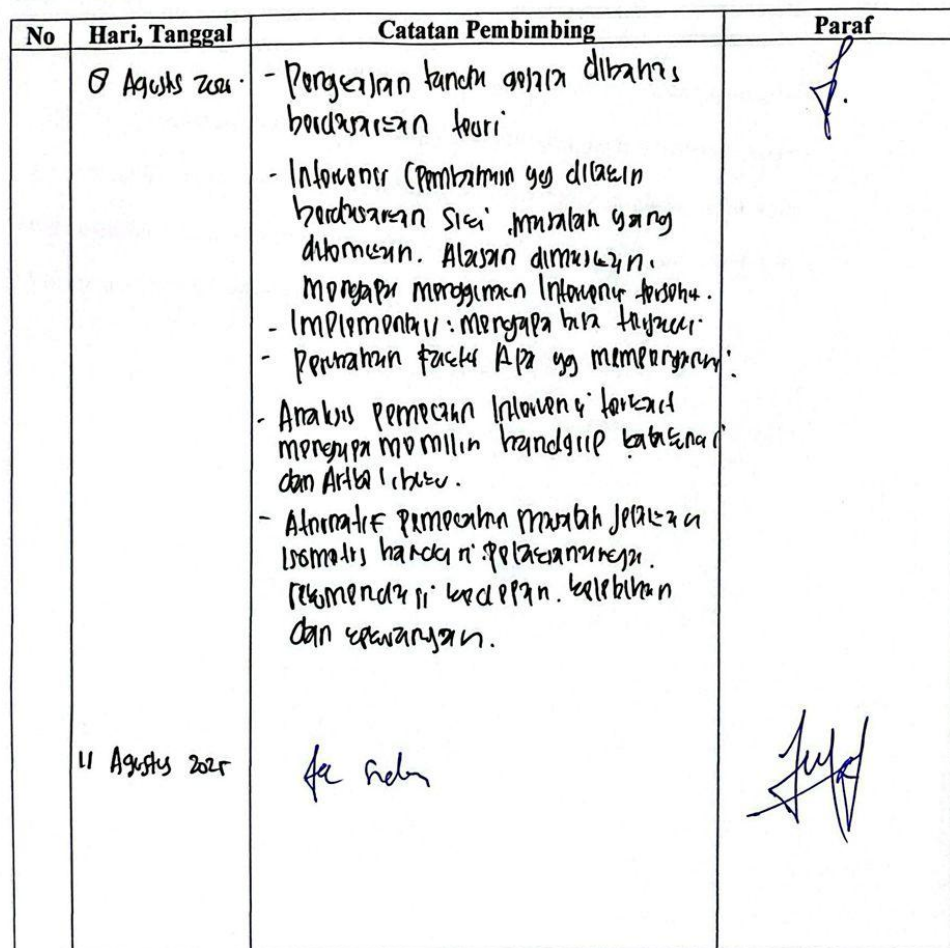 No Hari, Tanggal Catatan Pembimbing Paraf
8 Agustus 2025 - Pengkajian tanda gejala dibahas
berdasarkan teori
- Intervensi (Pembahasan yg dilakukan
berdasarkan masalah yang
ditemukan. Alasan dimasukkan.
mengapa menggunakan Intervensi tersebut.
- Implementasi : mengapa bisa
- Perubahan faktor Apa yg mempengaruhi
- Analisis pemecahan Intervensi terkait
mengapa memilih handgrip
dan
- Alternatif pemecahan masalah jelaskan
isometris handgrip pelaksanaannya.
rekomendasi kedepan. kelebihan
dan kekurangan.
11 Agustus 2025 Acc sidang